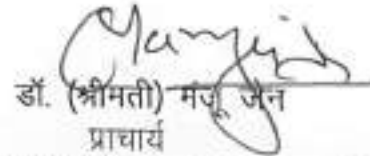 डॉ. (श्रीमती) मंजू जैन
प्राचार्य